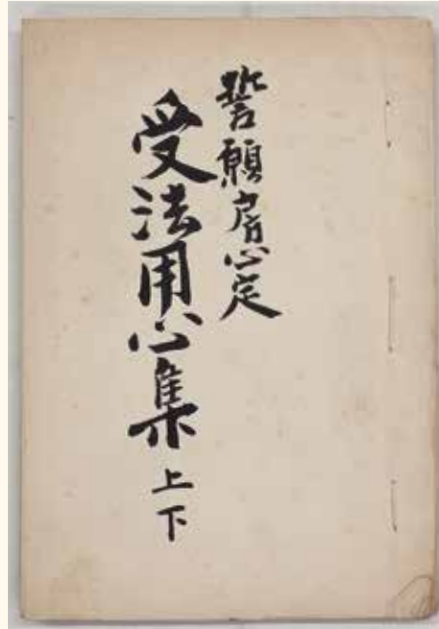 誓願房心定
受法用心集 上下